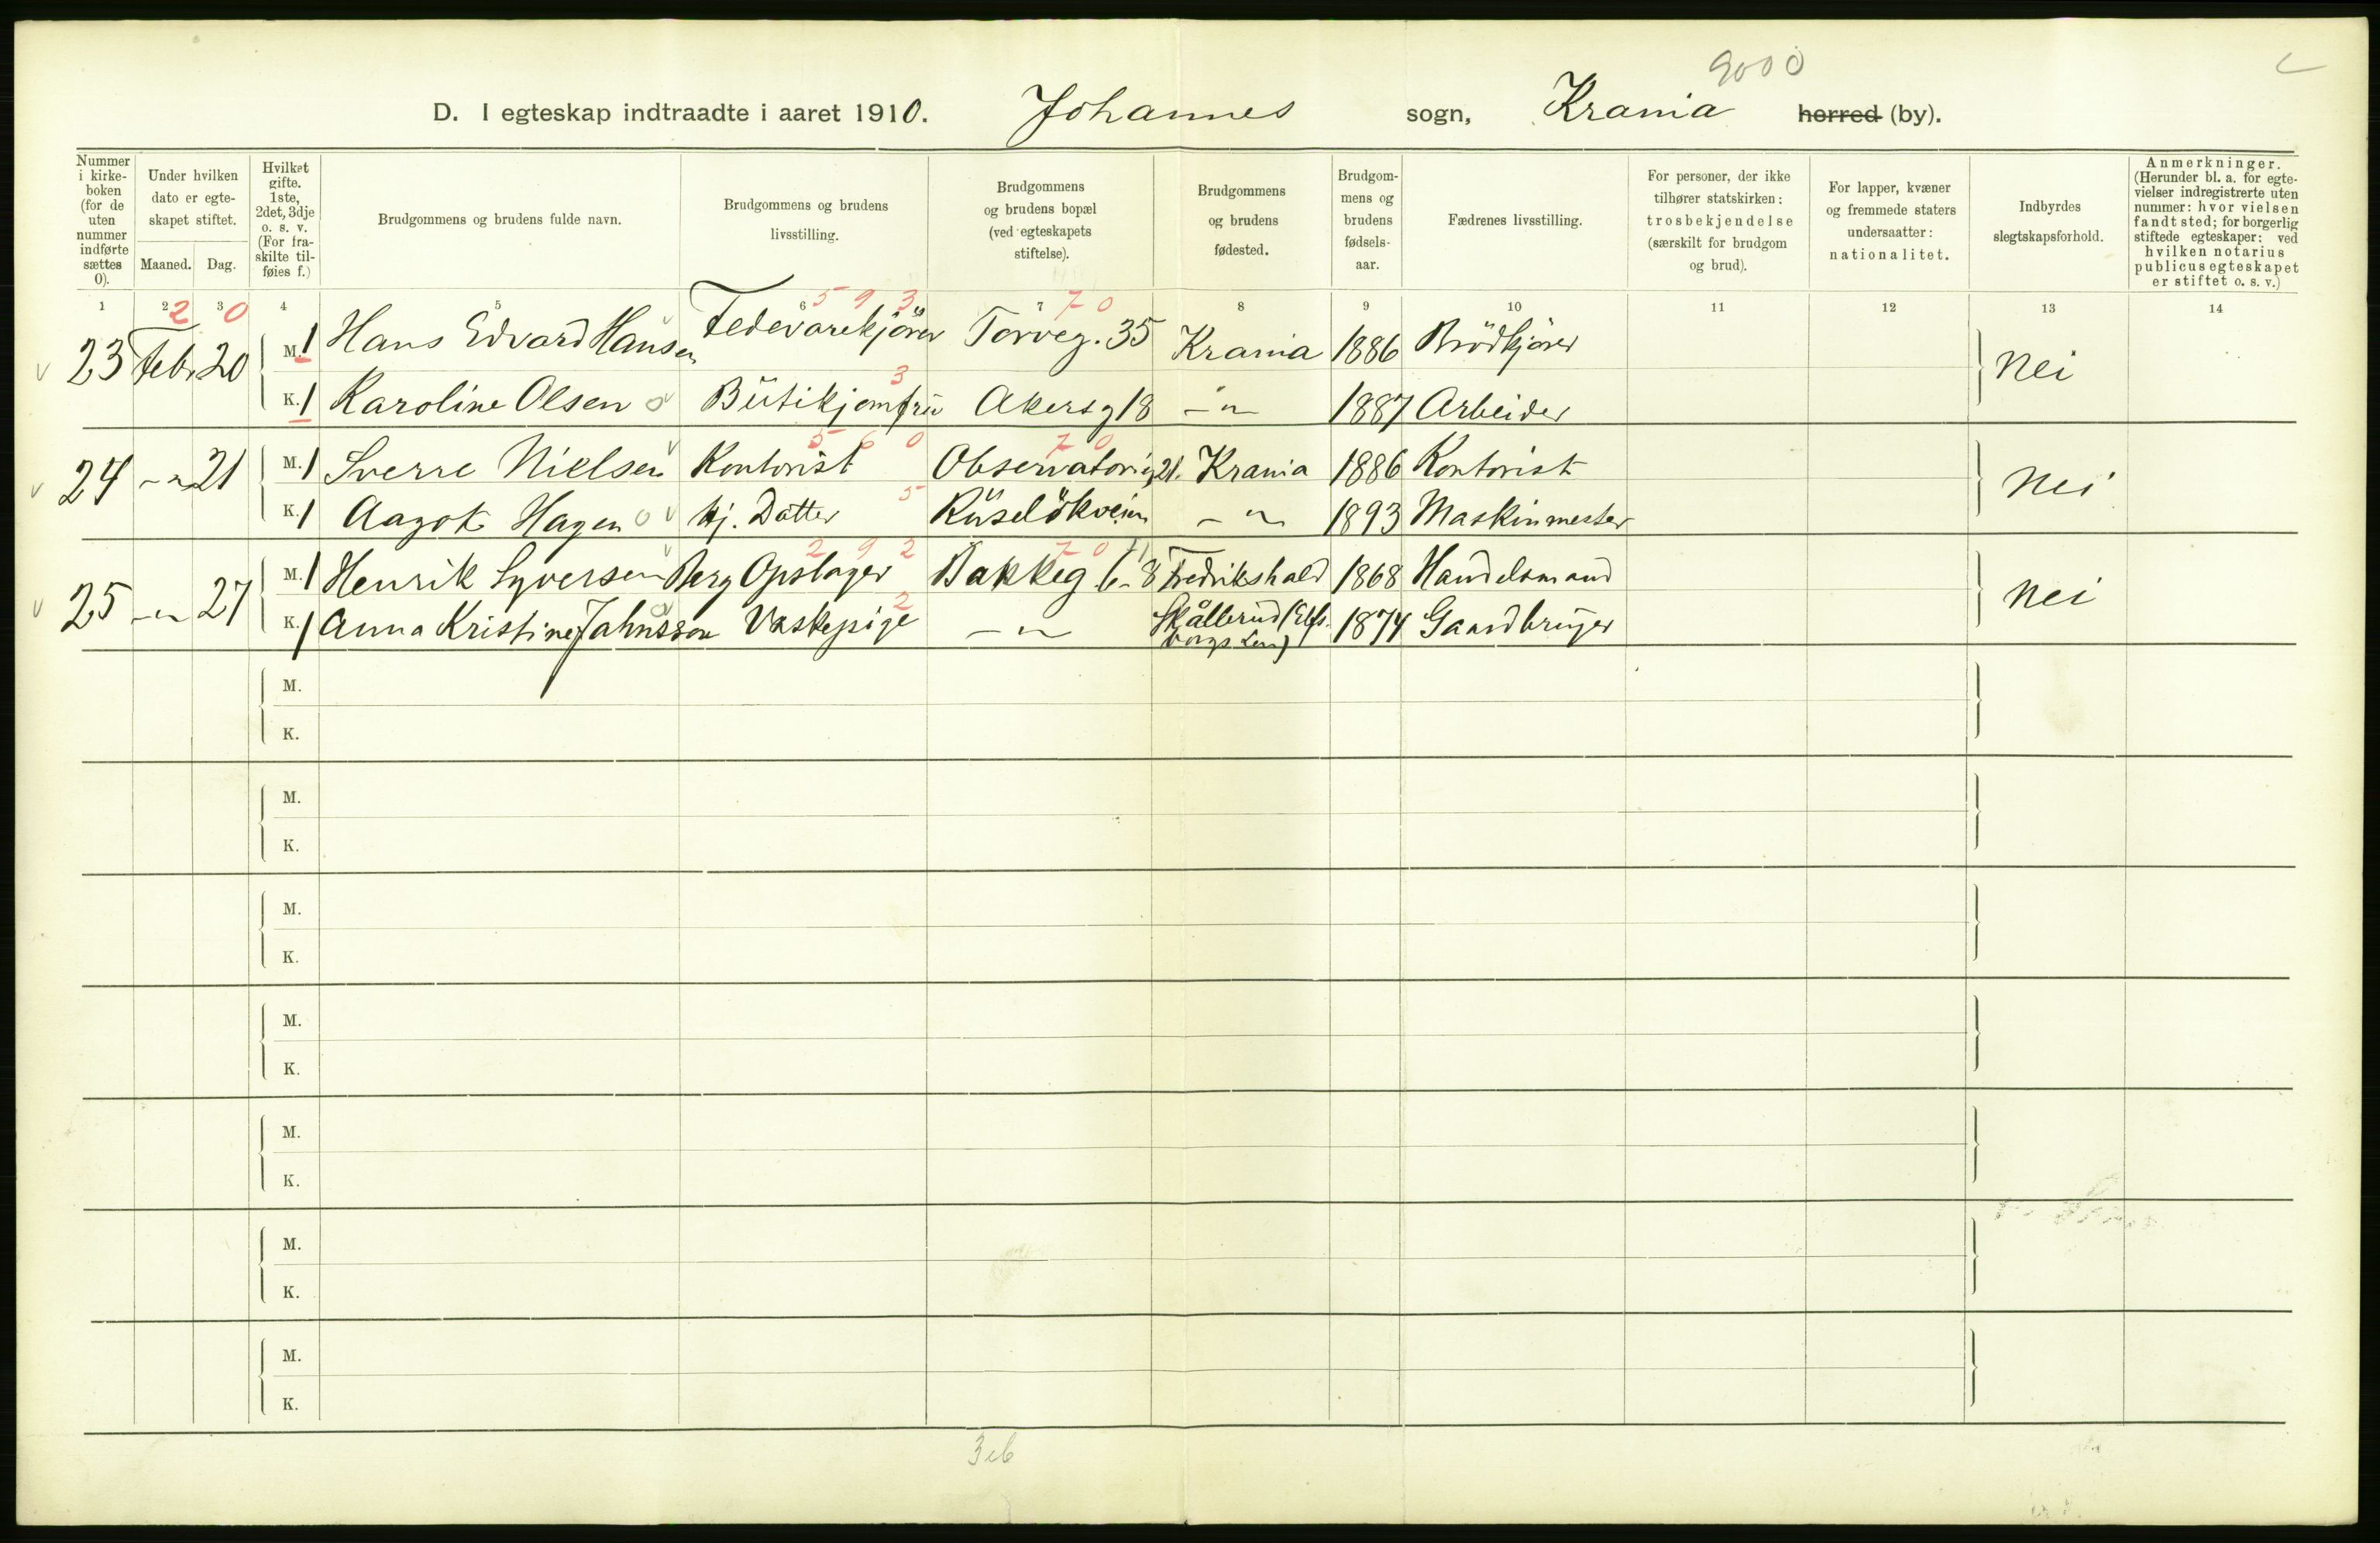 9000
D. I egteskap indtraadte i aaret 1910. Johannes sogn, Krania herred (by).
Nummer i kirke-boken (for de uten nummer indførte sættes 0).
Under hvilken dato er egte-skapet stiftet.
Maaned. Dag.
Hvilket gifte. 1ste, 2det, 3dje o. s. v. (For fra-skilte til-føies f.)
Brudgommens og brudens fulde navn.
Brudgommens og brudens livsstilling.
Brudgommens og brudens bopæl (ved egteskapets stiftelse).
Brudgommens og brudens fødested.
Brudgom-mens og brudens fødsels-aar.
Fædrenes livsstilling.
For personer, der ikke tilhører statskirken: trosbekjendelse (særskilt for brudgom og brud).
For lapper, kvæner og fremmede staters undersaatter: nationalitet.
Indbyrdes slegtskapsforhold.
Anmerkninger. (Herunder bl. a. for egte-vielser indregistrerte uten nummer: hvor vielsen fandt sted; for borgerlig stiftede egteskaper: ved hvilken notarius publicus egteskapet er stiftet o. s. v.)
1 2 3 4 5 6 7 8 9 10 11 12 13 14
2 0 5 9 3 7 0
23 Feb. 20 M. 1 Hans Edvard Hansen Fedevarekjører Torveg. 35 Krania 1886 Brödkjører Nei
3
K. 1 Karoline Olsen Butikjomfru Akersg 18 -"- 1887 Arbeider
5 6 0 7 0
24 -"- 21 M. 1 Sverre Nielsen Kontorist Observatorieg 21. Krania 1886 Kontorist Nei
5
K. 1 Aagot Hagen Hj. Datter Ruselökveien -"- 1893 Maskinmester
2 9 2 7 0
25 -"- 27 M. 1 Henrik Syversen Berg Opslager Bakkeg 6-8 Fredrikshald 1868 Handelsmand Nei
2
K. 1 Anna Kristine Jahnsson Vaskepige -"- Skållerud (Elfs-borgs Len) 1874 Gaardbruger
M.
K.
M.
K.
M.
K.
M.
K.
M.
K.
M.
K.
M.
K.